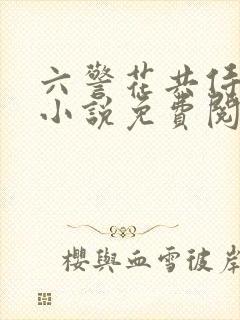 六警花共侍
小說免費閱
櫻與血雪彼岸